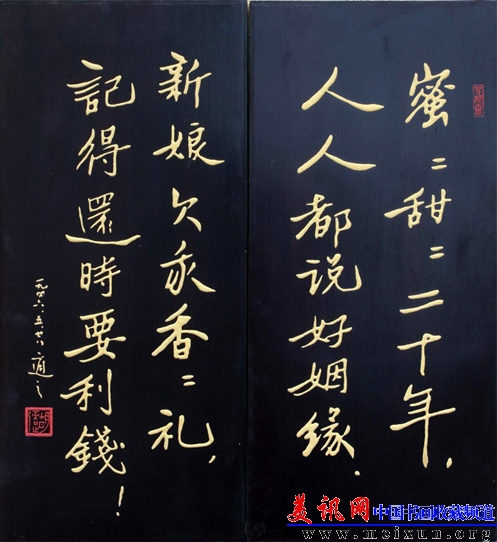 蜜〻甜〻二十年，
人人都说好姻缘．
新娘欠我香〻礼，
記得還時要利錢！
一九六六．五．廿八　適之
美讯网
中国书画收藏频道
www.meixun.org